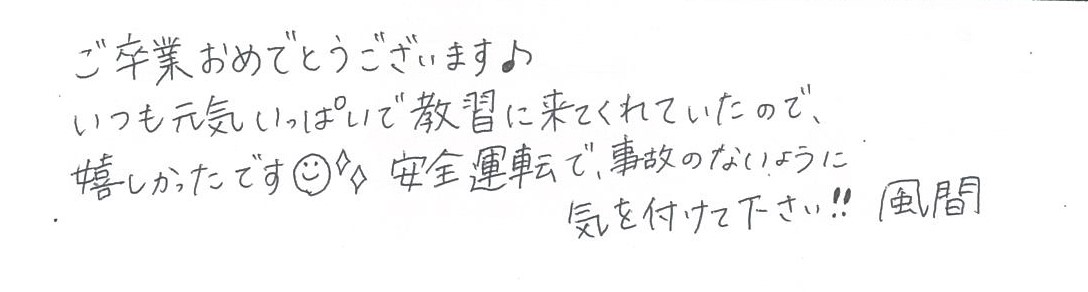 ご卒業おめでとうございます♪
いつも元気いっぱいで教習に来てくれていたので、
嬉しかったです☺✧✧ 安全運転で、事故のないように
気を付けて下さい!! 風間